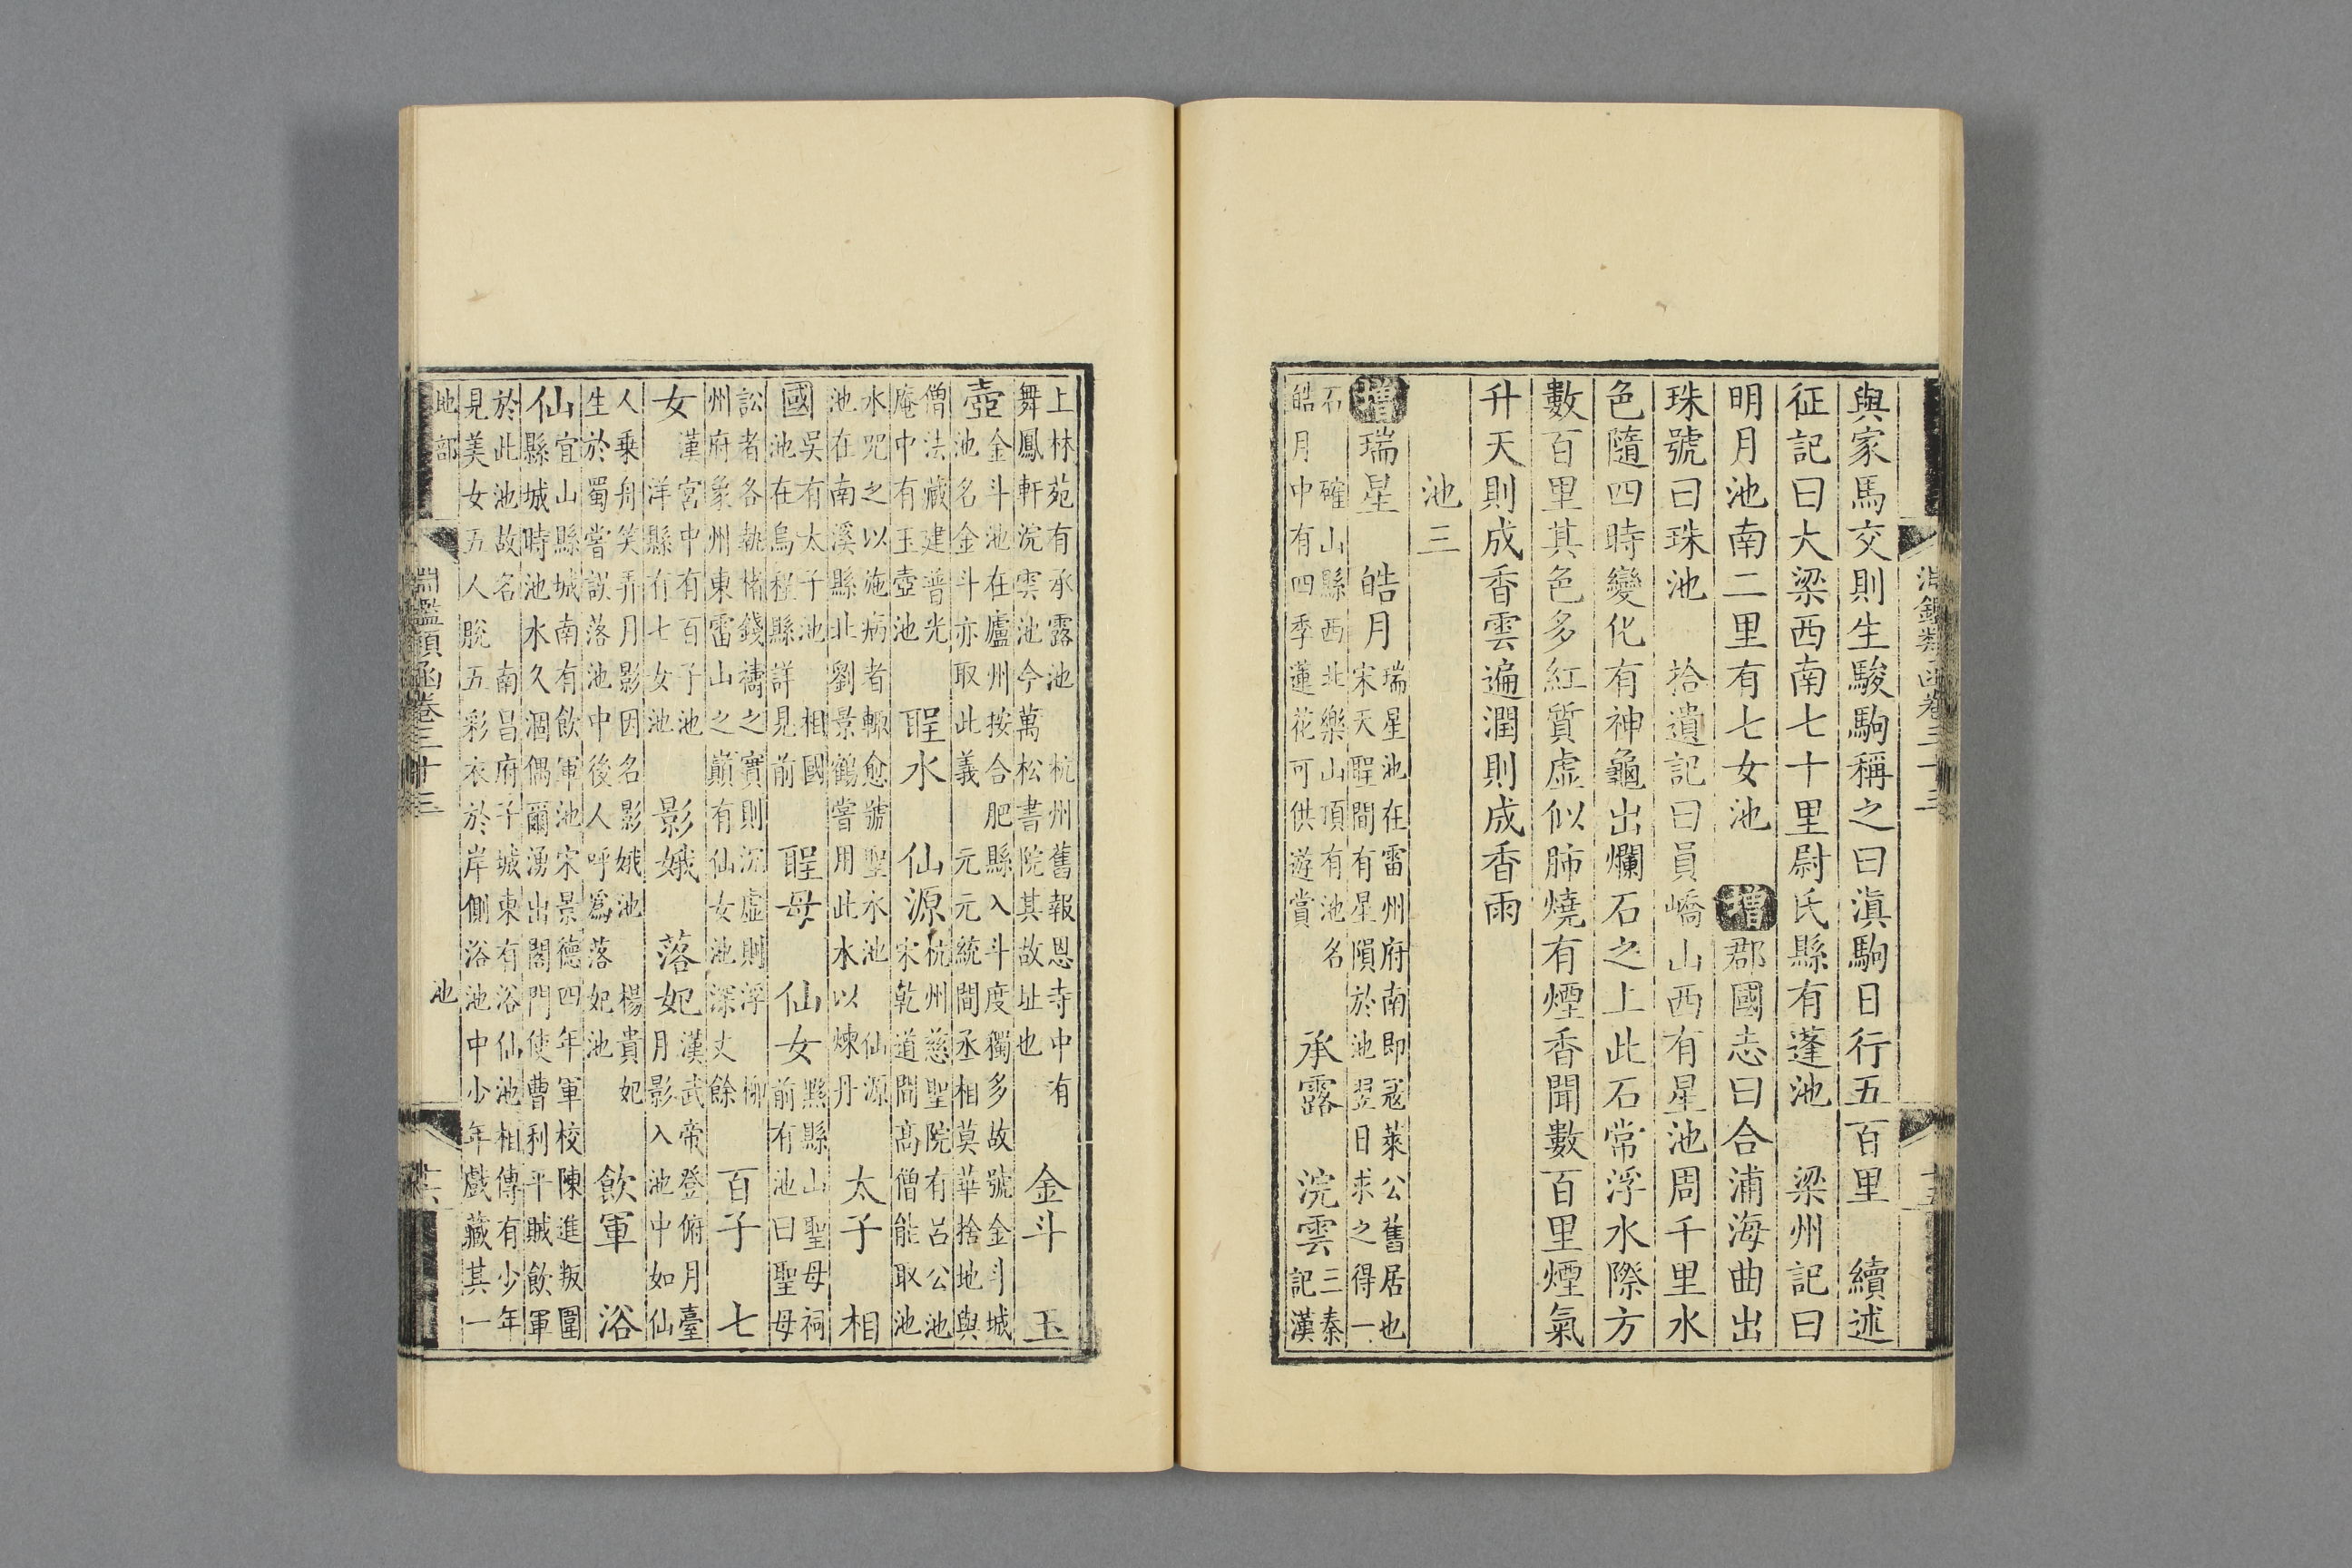 淵鑑類函卷三十三
十五
與家馬交則生駿駒稱之曰滇駒日行五百里 續述
征記曰大梁西南七十里尉氏縣有蓬池 梁州記曰
明月池南二里有七女池 增 郡國志曰合浦海曲出
珠號曰珠池 拾遺記曰員嶠山西有星池周千里水
色隨四時變化有神龜出爛石之上此石常浮水際方
數百里其色多紅質虛似肺燒有煙香聞數百里煙氣
升天則成香雲遍潤則成香雨
池三
增 瑞星 皓月
瑞星池在雷州府南即冦萊公舊居也
宋天聖間有星隕於池翌日求之得一
石 確山縣西北樂山頂有池名
皓月中有四季蓮花可供遊賞
承露 浣雲
三秦
記漢
上林苑有承露池 杭州舊報恩寺中有
舞鳳軒浣雲池今萬松書院其故址也
金斗 玉
壺
金斗池在廬州按合肥縣入斗度獨多故號金斗城
池名金斗亦取此義 元元統間丞相莫華捨地與
僧法藏建普光
庵中有玉壺池
聖水 仙源
杭州慈聖院有呂公池
宋乾道間髙僧能取池
水咒之以施病者輙愈號聖水池 仙源
池在南溪縣北劉景鶴嘗用此水以煉丹
太子 相
國
吳有太子池 相國
池在烏程縣詳見前
聖母 仙女
黟縣山聖母祠
前有池曰聖母
訟者各執楮錢禱之實則沉虛則浮 柳
州府象州東雷山之巔有仙女池深丈餘
百子 七
女
漢宮中有百子池
洋縣有七女池
影娥 落妃
漢武帝登俯月臺
月影入池中如仙
人乗舟笑弄月影因名影娥池 楊貴妃
生於蜀嘗誤落池中後人呼為落妃池
飲軍 浴
仙
宜山縣城南有飲軍池宋景德四年軍校陳進叛圍
縣城時池水久涸偶爾湧出閤門使曹利平賊飲軍
於此池故名 南昌府子城東有浴仙池相傳有少年
見美女五人脫五彩衣於岸側浴池中少年戲藏其一
地部
淵鑑類函卷三十三
池
十六